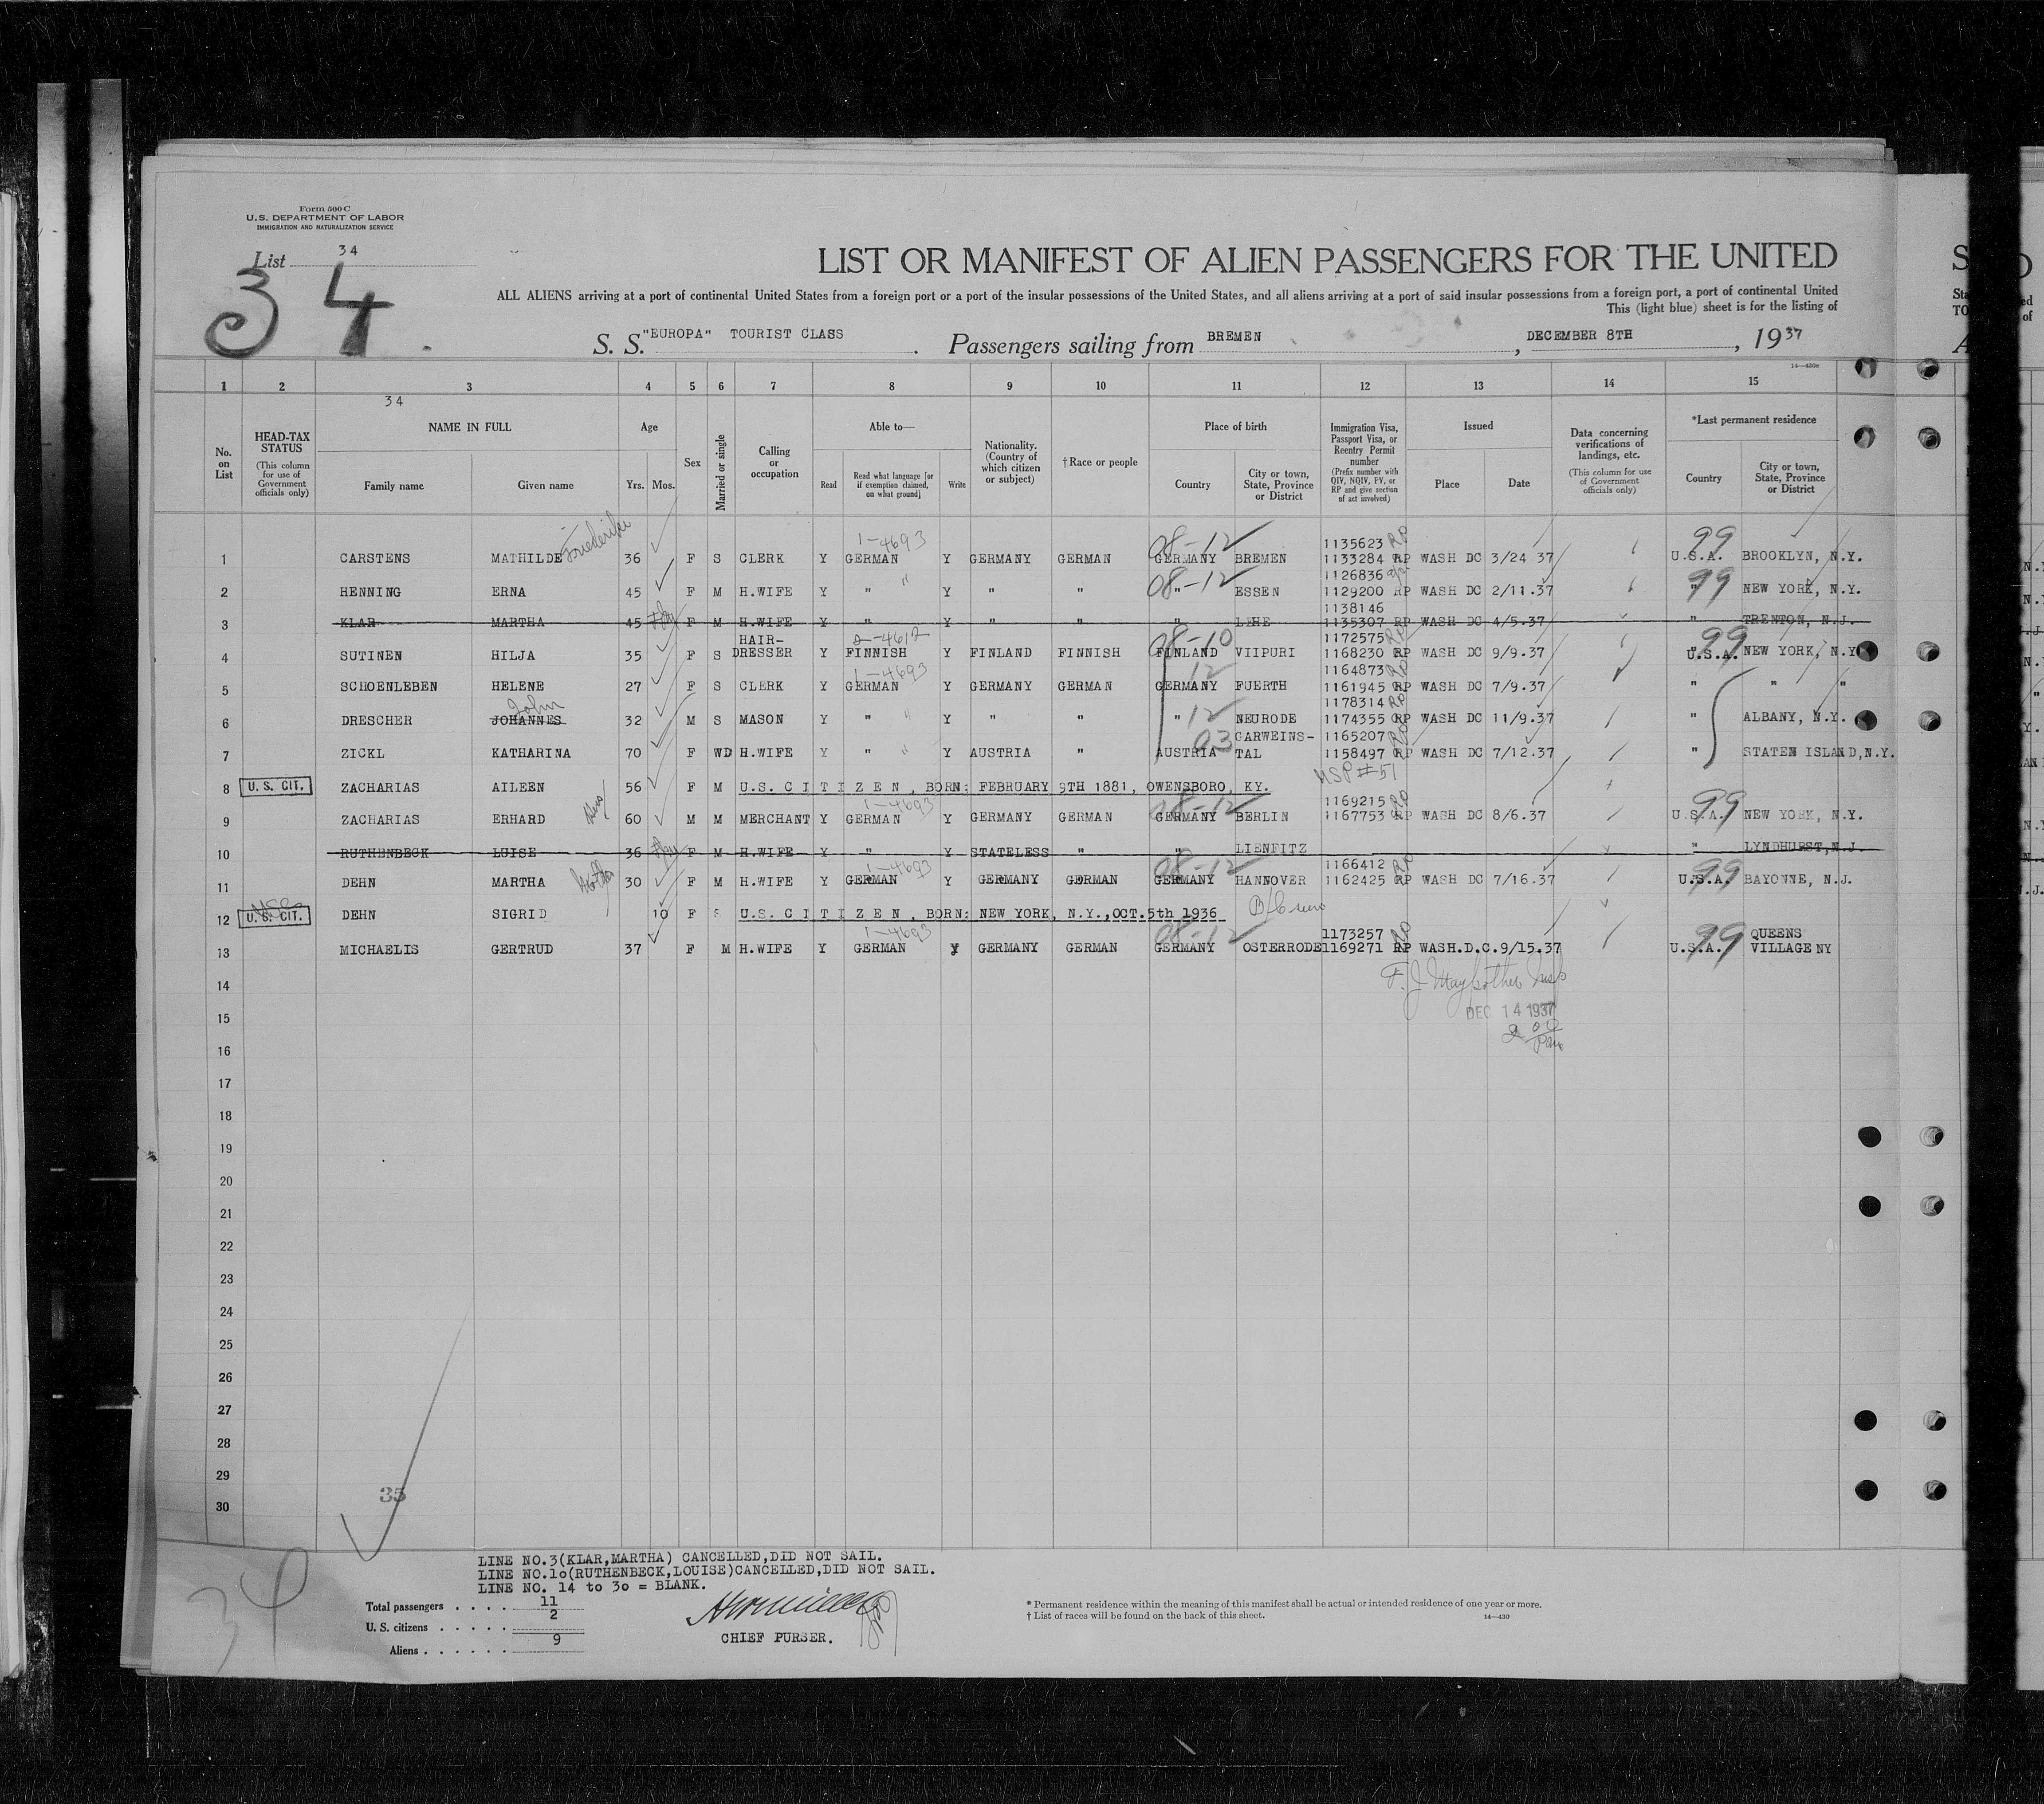 Form 500 C
U.S. DEPARTMENT OF LABOR
IMMIGRATION AND NATURALIZATION SERVICE
List 34
34
LIST OR MANIFEST OF ALIEN PASSENGERS FOR THE UNITED
ALL ALIENS arriving at a port of continental United States from a foreign port or a port of the insular possessions of the United States, and all aliens arriving at a port of said insular possessions from a foreign port, a port of continental United
This (light blue) sheet is for the listing of
S. S. "EUROPA" TOURIST CLASS . Passengers sailing from BREMEN , DECEMBER 8TH , 1937
14—430a
1 2 3 4 5 6 7 8 9 10 11 12 13 14 15
34
No. on List
HEAD-TAX STATUS (This column for use of Government officials only)
NAME IN FULL Family name Given name
Age Yrs. Mos.
Sex
Married or single
Calling or occupation
Able to— Read Read what language [or if exemption claimed, on what ground] Write
Nationality. (Country of which citizen or subject)
† Race or people
Place of birth Country City or town, State, Province or District
Immigration Visa, Passport Visa, or Reentry Permit number (Prefix number with QIV, NQIV, PV, or RP and give section of act involved)
Issued Place Date
Data concerning verifications of landings, etc. (This column for use of Government officials only)
*Last permanent residence Country City or town, State, Province or District
1-4693 08-12 1135623 RP 99
1 CARSTENS MATHILDE Friederike 36 F S CLERK Y GERMAN Y GERMANY GERMAN GERMANY BREMEN 1133284 RP WASH DC 3/24 37 U.S.A. BROOKLYN, N.Y.
08-12 1126836 99
2 HENNING ERNA 45 F M H.WIFE Y " " Y " " " ESSEN 1129200 RP WASH DC 2/11.37 " NEW YORK, N.Y.
1138146
3 KLAR MARTHA 45 F M H.WIFE Y " Y " " " LEHE 1135307 RP WASH DC 4/5.37 " TRENTON, N.J.
HAIR- 2-4612 08-10 1172575 RP 99
4 SUTINEN HILJA 35 F S DRESSER Y FINNISH Y FINLAND FINNISH FINLAND VIIPURI 1168230 RP WASH DC 9/9.37 U.S.A. NEW YORK, N.Y.
1-4693 12 1164873 RP
5 SCHOENLEBEN HELENE 27 F S CLERK Y GERMAN Y GERMANY GERMAN GERMANY FUERTH 1161945 RP WASH DC 7/9.37 " " "
John 12 1178314 RP
6 DRESCHER JOHANNES 32 M S MASON Y " " Y " " " NEURODE 1174355 RP WASH DC 11/9.37 " ALBANY, N.Y.
03 GARWEINS- 1165207 RP
7 ZICKL KATHARINA 70 F WD H.WIFE Y " " Y AUSTRIA " AUSTRIA TAL 1158497 RP WASH DC 7/12.37 " STATEN ISLAND,N.Y.
USP #51
8 U. S. CIT. ZACHARIAS AILEEN 56 F M U.S. C I T I Z E N , BORN: FEBRUARY 9TH 1881, OWENSBORO, KY.
1-4693 08-12 1169215 RP 99
9 ZACHARIAS ERHARD 60 M M MERCHANT Y GERMAN Y GERMANY GERMAN GERMANY BERLIN 1167753 RP WASH DC 8/6.37 U.S.A. NEW YORK, N.Y.
10 RUTHENBECK LUISE 36 F M H.WIFE Y " Y STATELESS " " LIENFITZ " LYNDHURST,N.J.
1-4693 08-12 1166412 RP 99
11 DEHN MARTHA 30 F M H.WIFE Y GERMAN Y GERMANY GERMAN GERMANY HANNOVER 1162425 RP WASH DC 7/16.37 U.S.A. BAYONNE, N.J.
12 U. S. CIT. DEHN SIGRID 10 F S U.S. C I T I Z E N , BORN: NEW YORK, N.Y.,OCT.5th 1936
1-4693 08-12 1173257 RP 99 QUEENS
13 MICHAELIS GERTRUD 37 F M H.WIFE Y GERMAN Y GERMANY GERMAN GERMANY OSTERRODE 1169271 RP WASH.D.C.9/15.37 U.S.A. VILLAGE NY
14
15 DEC 14 1937
16
17
18
19
20
21
22
23
24
25
26
27
28
29
35
30
34
LINE NO.3(KLAR,MARTHA) CANCELLED,DID NOT SAIL.
LINE NO.1o(RUTHENBECK,LOUISE)CANCELLED,DID NOT SAIL.
LINE NO. 14 to 3o = BLANK.
Total passengers . . . . 11
U. S. citizens . . . . . 2
Aliens . . . . . . 9
CHIEF PURSER.
* Permanent residence within the meaning of this manifest shall be actual or intended residence of one year or more.
† List of races will be found on the back of this sheet. 14—430